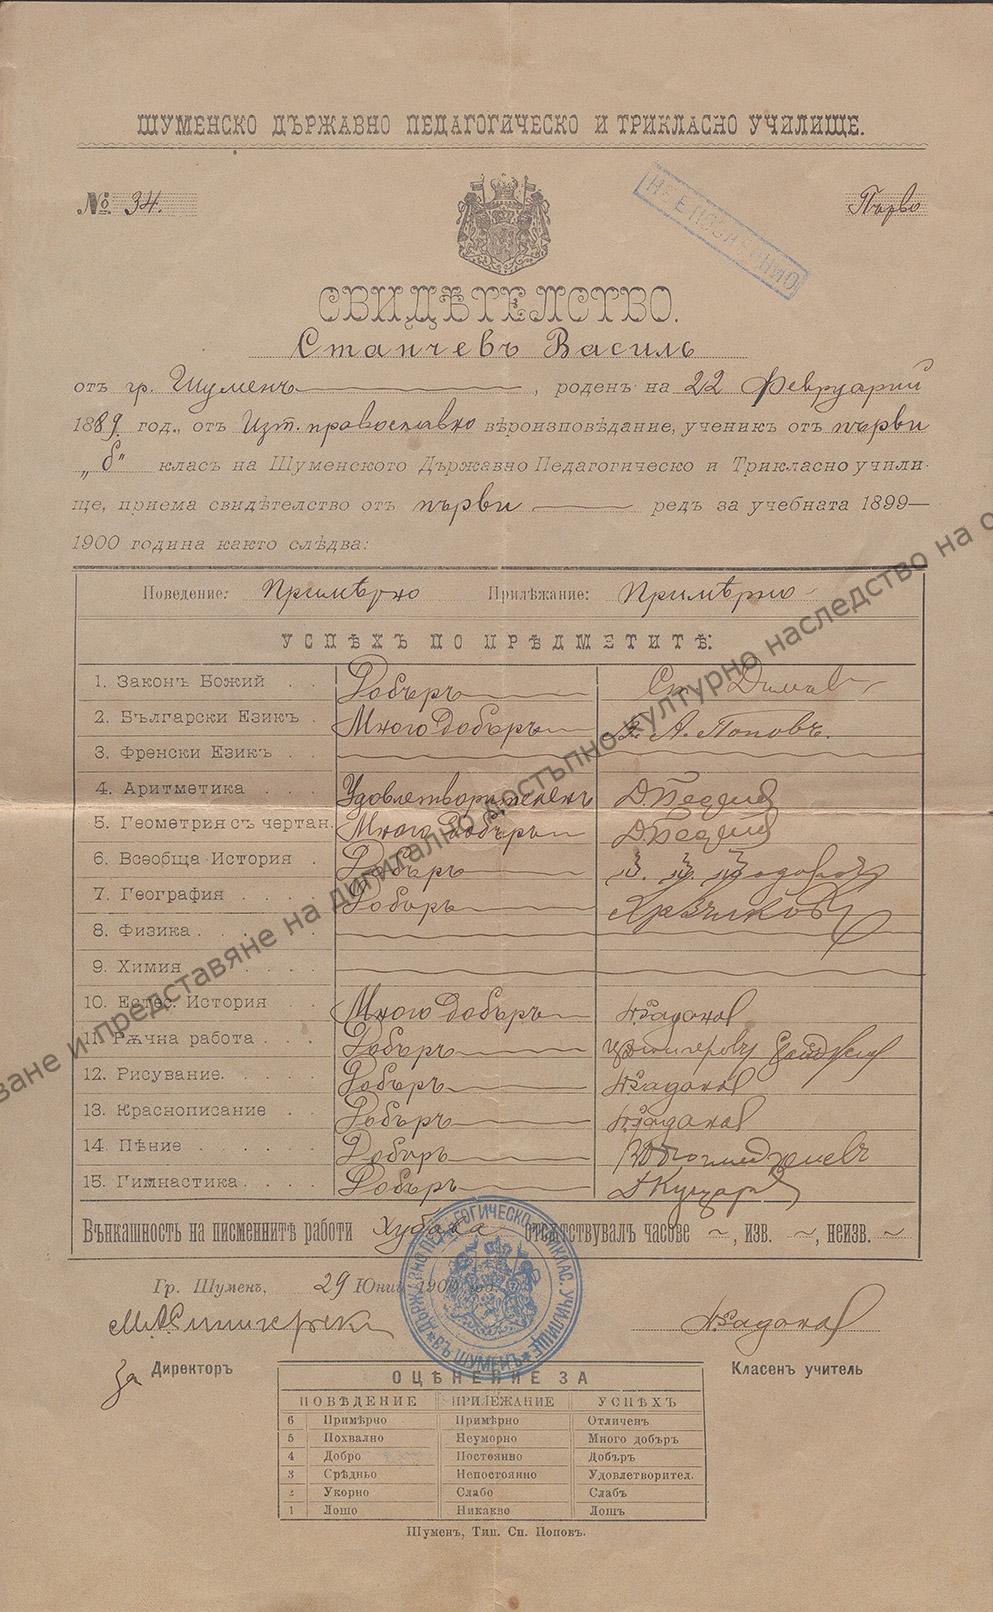 ШУМЕНСКО ДЪРЖАВНО ПЕДАГОГИЧЕСКО И ТРИКЛАСНО УЧИЛИЩЕ.
№ 34. Първо
СВИДѢТЕЛСТВО.
Станчевъ Василъ
отъ гр. Шуменъ, роденъ на 22 Февруарий
1889 год., отъ Изт. православно вѣроизповѣдание, ученикъ отъ първи
„б" класъ на Шуменското Държавно Педагогическо и Трикласно учили-
ще, приема свидѣтелство отъ първи редъ за учебната 1899—
1900 година както слѣдва:
Поведение: Примѣрно Прилѣжание: Примѣрно
УСПѢХЪ ПО ПРѢДМЕТИТѢ:
1. Законъ Божий . . Добъръ
2. Български Езикъ . Много добъръ А. Поповъ.
3. Френски Езикъ . .
4. Аритметика . . . Удовлетворителенъ
5. Геометрия съ чертан. Много добъръ
6. Всеобща История . Добъръ
7. География . . . . Добъръ
8. Физика . . . . .
9. Химия . . . .
10. Естес. История . . Много добъръ
11. Рѫчна работа . . . Добъръ
12. Рисувание. . . . . Добъръ
13. Краснописание . . Добъръ
14. Пѣние . . . . . Добъръ
15. Гимнастика . . . . Добъръ
Вънкашность на писменнитѣ работи Хубава отсѫтствувалъ часове ~, изв. ~, неизв. ~
Гр. Шуменъ, 29 Юний 1900
за Директоръ Класенъ учитель
ДЪРЖАВНО ПЕДАГОГИЧЕСКО И ТРИКЛАС. УЧИЛИЩЕ * ВЪ ШУМЕНЪ *
ОЦѢНЕНИЕ ЗА
ПОВѢДЕНИЕ ПРИЛЕЖАНИЕ УСПѢХЪ
6 Примѣрно Примѣрно Отличенъ
5 Похвално Неуморно Много добъръ
4 Добро Постоянно Добъръ
3 Срѣдньо Непостоянно Удовлетворител.
2 Укорно Слабо Слабъ
1 Лошо Никакво Лошъ
Шуменъ, Тип. Сп. Попозъ.
ване и представяне на дигитално достъпно културно наследство на о